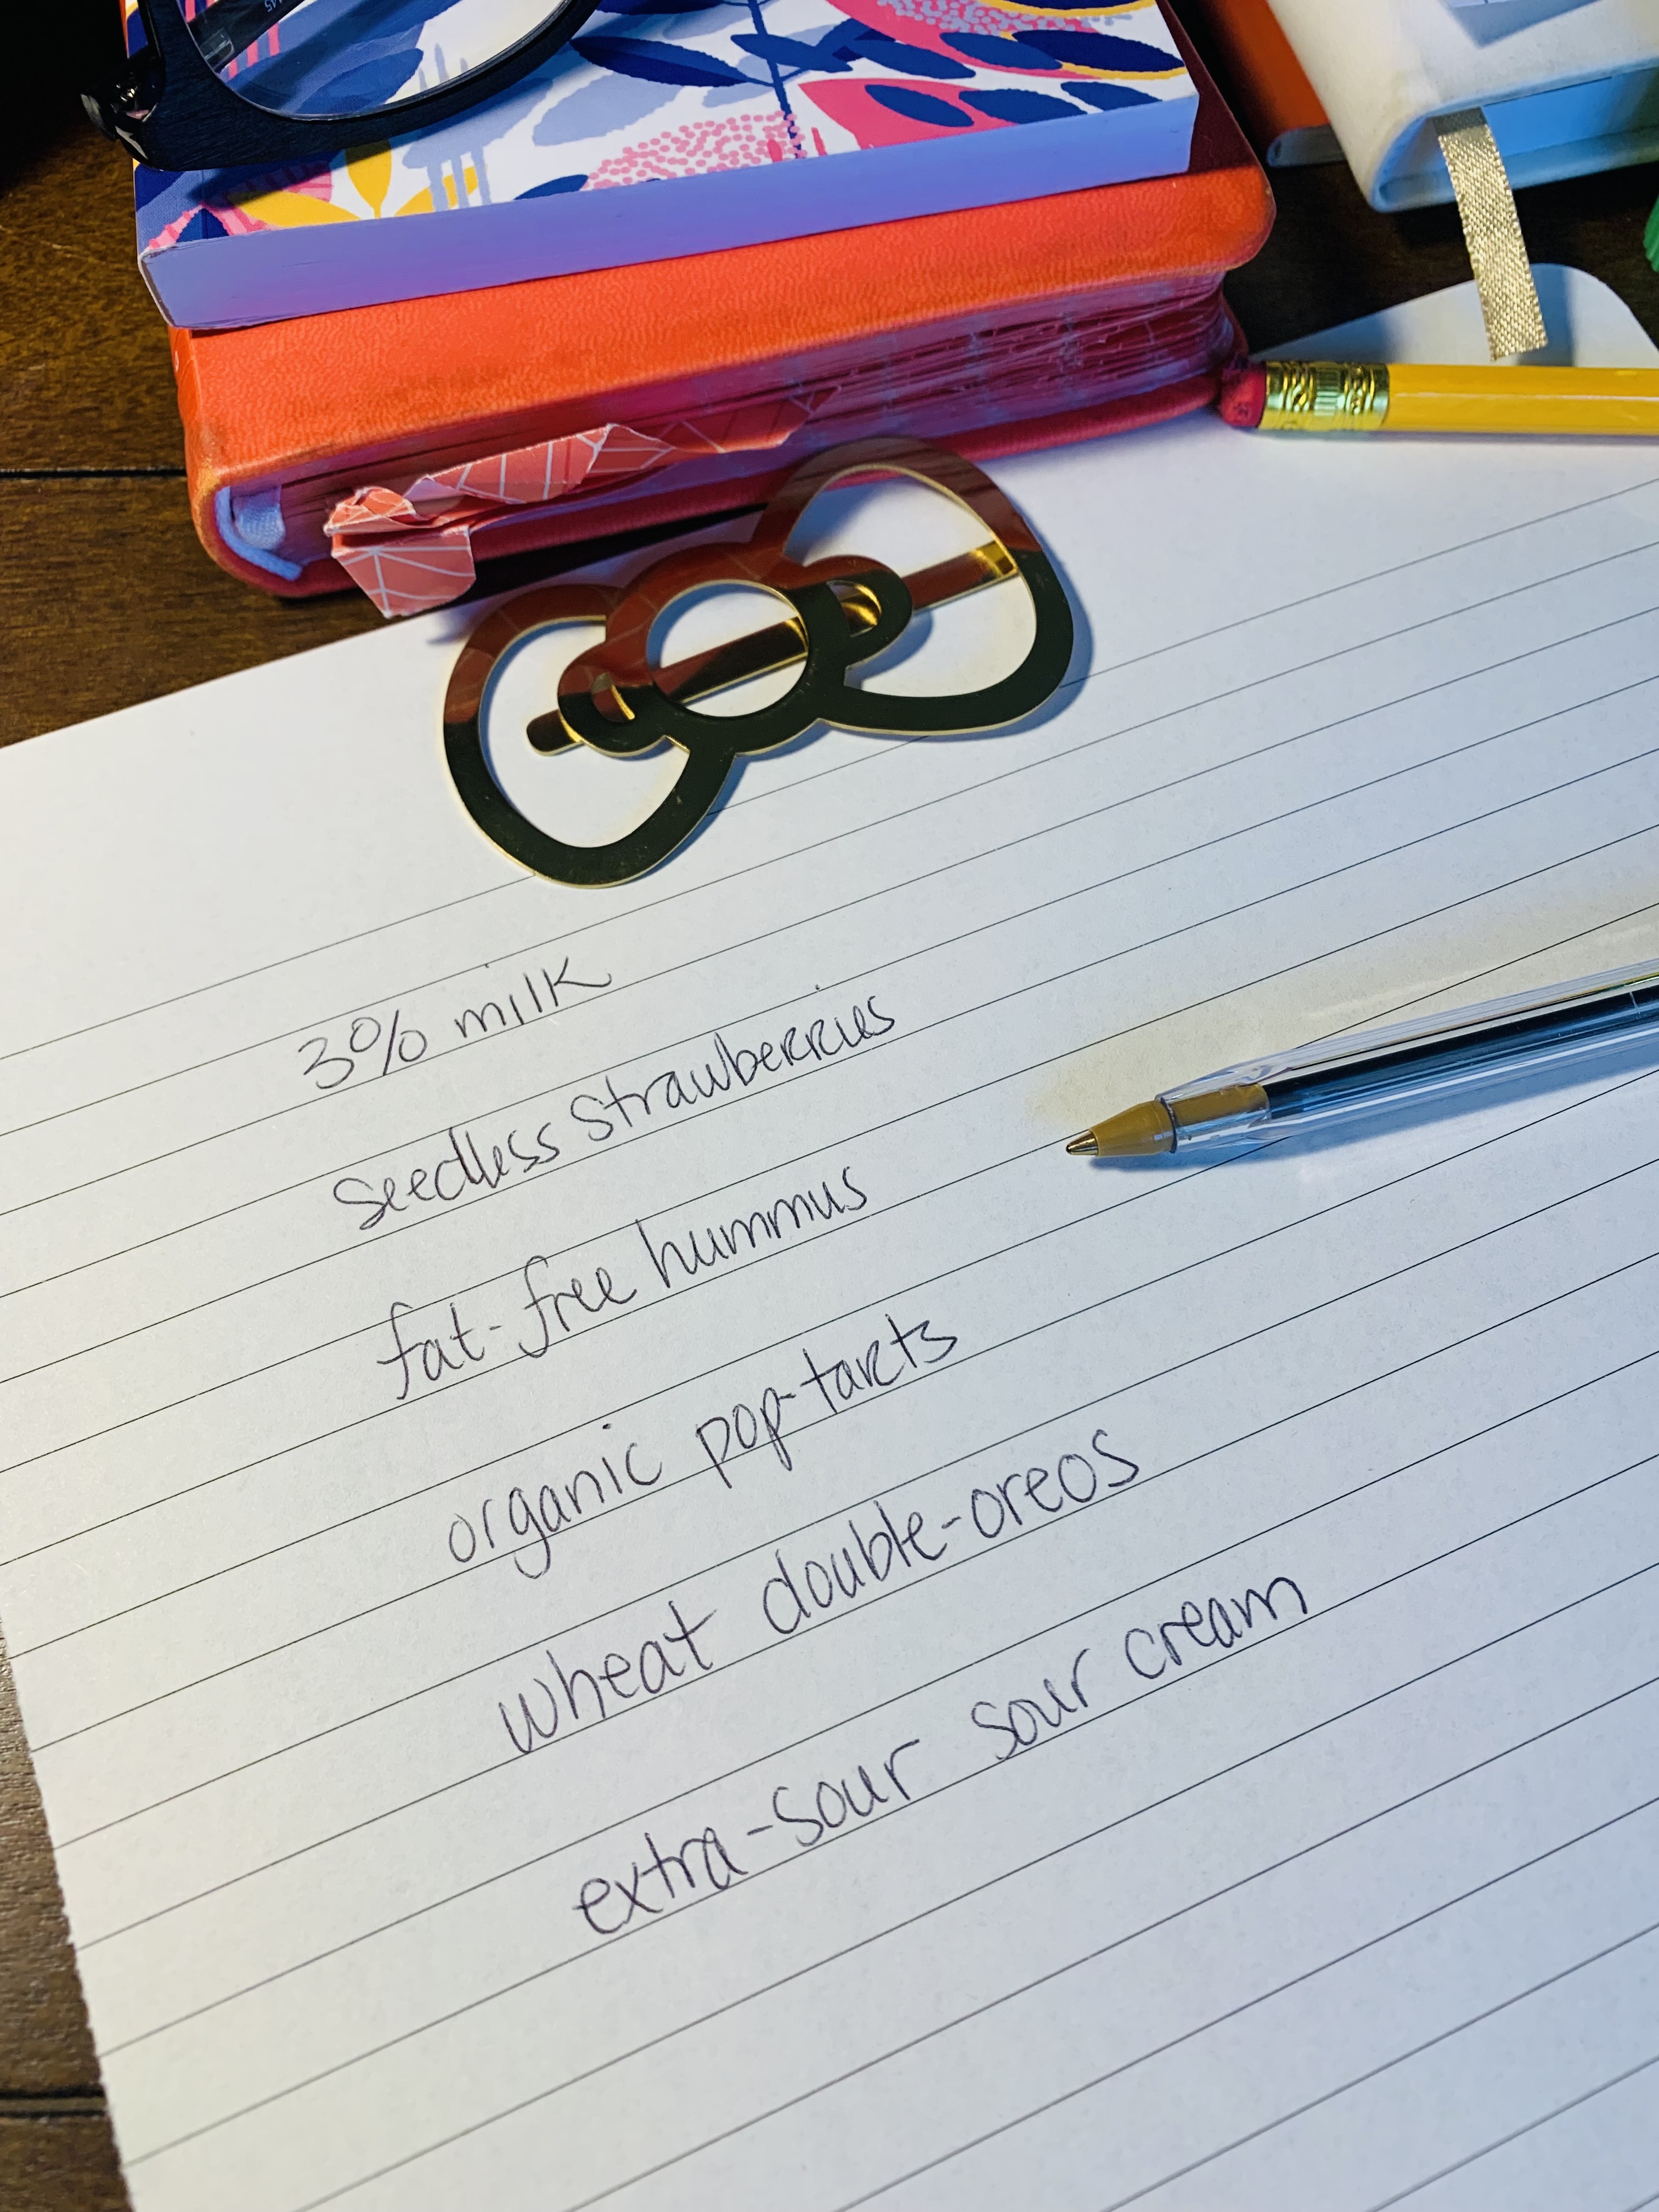 3% milk
seedless strawberries
fat-free hummus
organic pop-tarts
wheat double-oreos
extra-sour sour cream